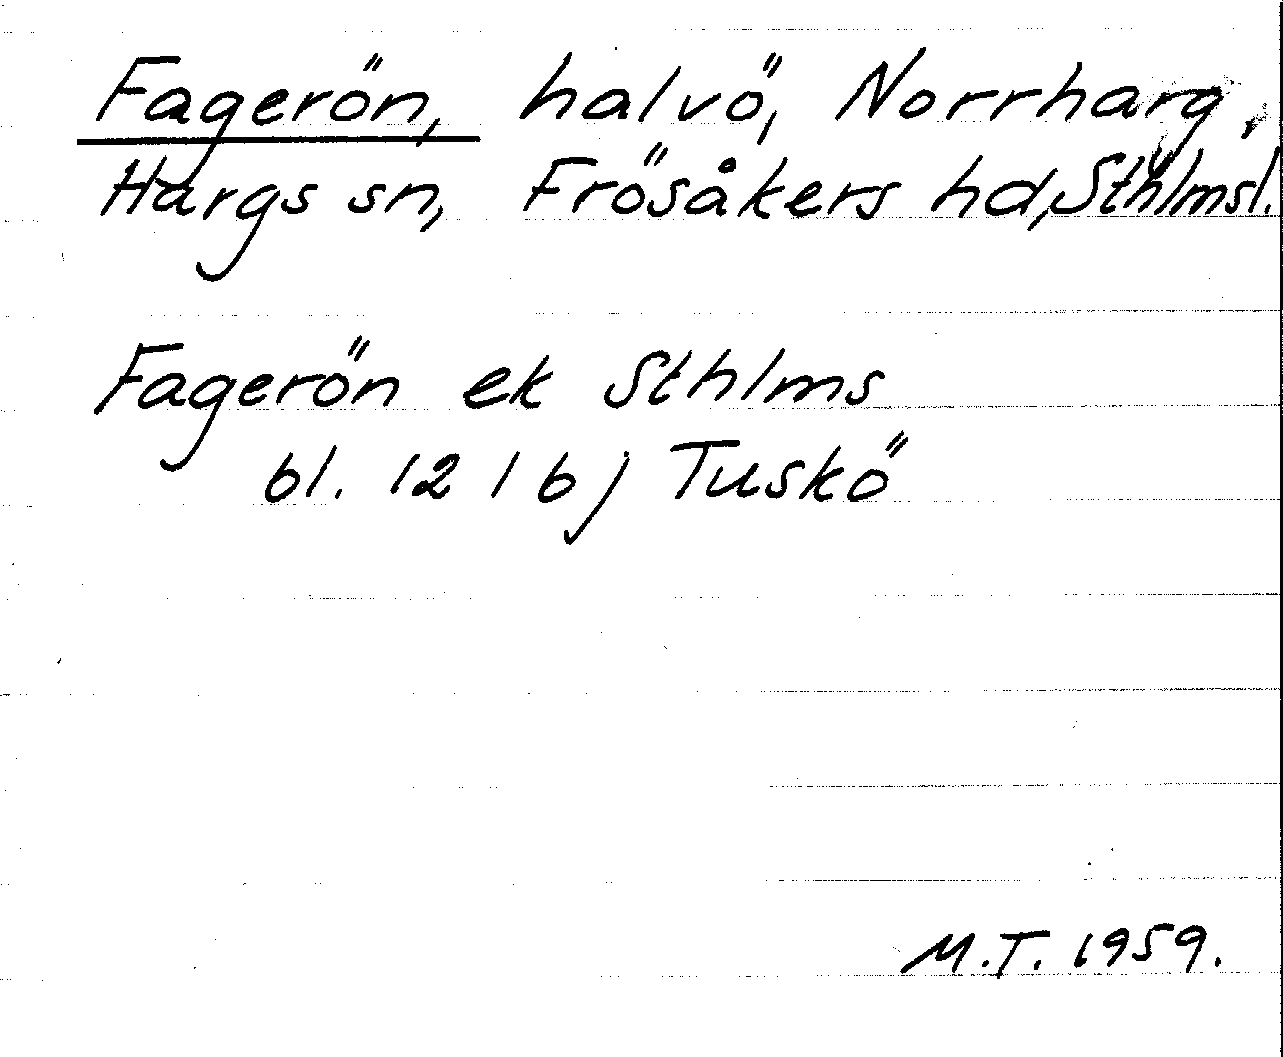 Fagerön, halvö, Norrharg,
Hargs sn, Frösåkers hd, Sthlmsl.
Fagerön ek Sthlms
bl. 12 1 b) Tuskö
M.T. 1959.